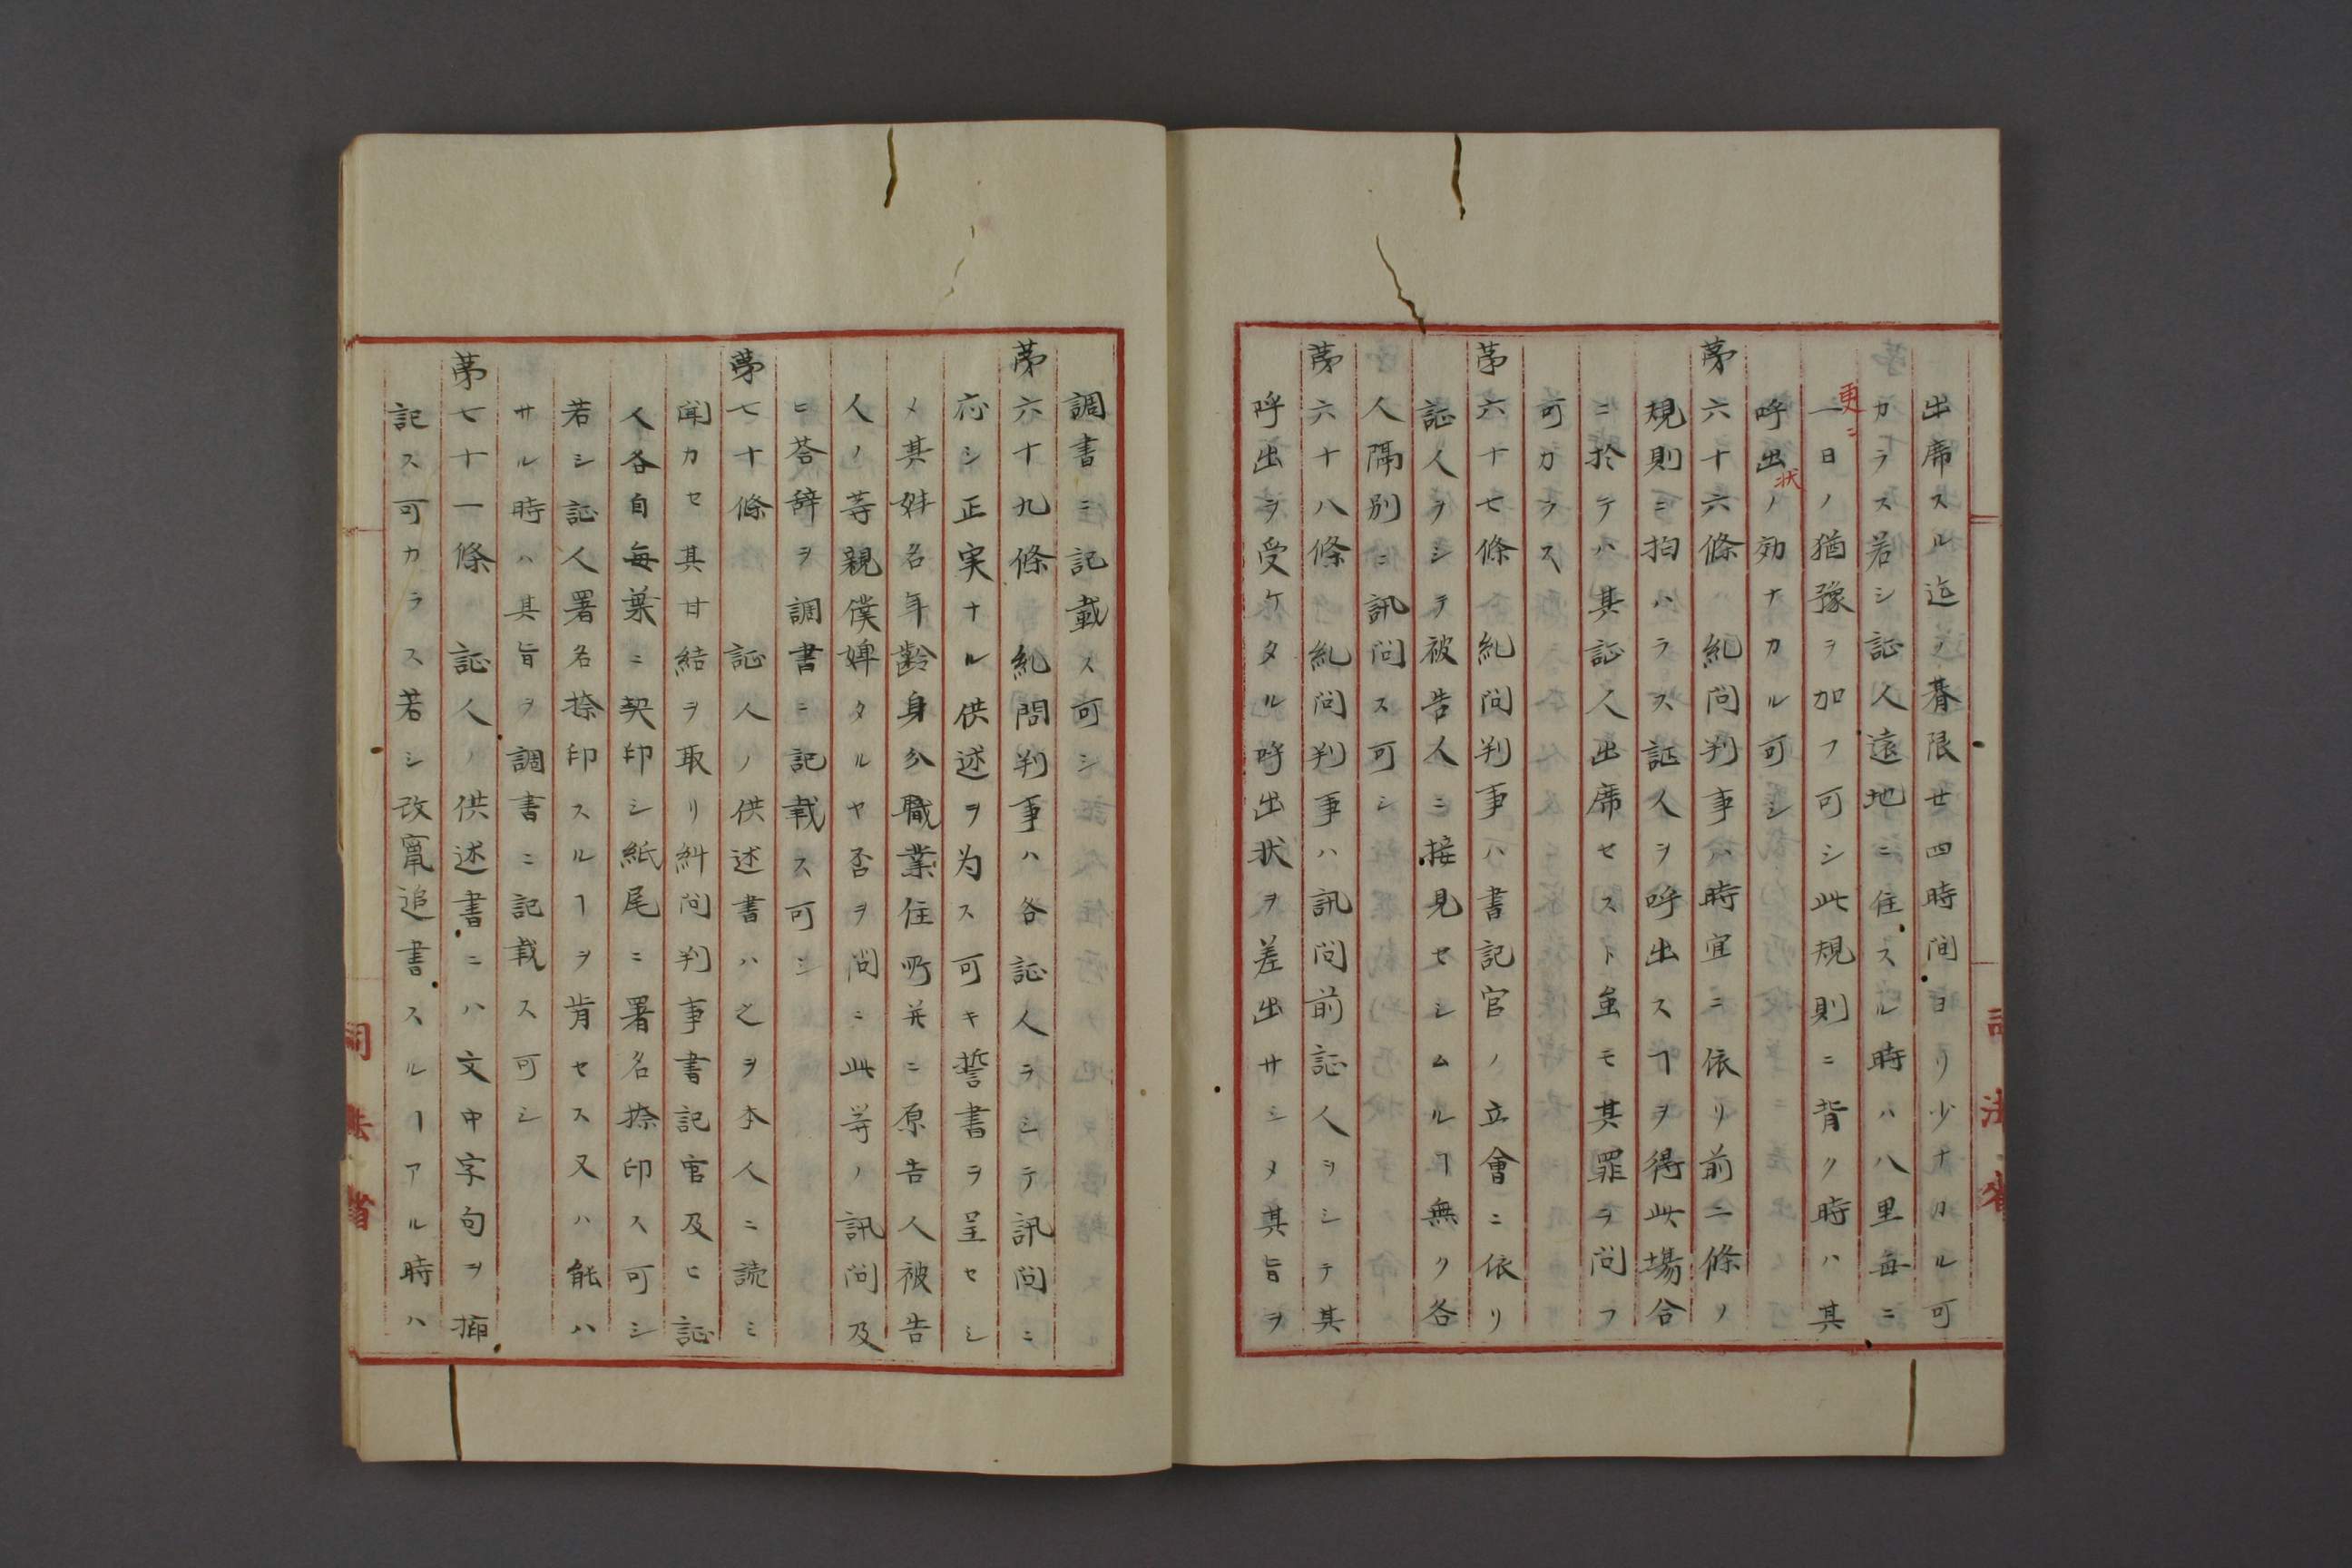 出席スル迄ノ朞限廿四時間ヨリ少ナカル可
カラス若シ証人遠地ニ住スル時ハ八里毎ニ
更ニ
一日ノ猶豫ヲ加フ可シ此規則ニ背ク時ハ其
呼出状ノ効ナカル可シ
苐六十六條　糺問判事ハ時宜ニ依リ前二條ノ
規則ニ拘ハラス証人ヲ呼出スヿヲ得此塲合
ニ於テハ其証人出席セスト虽モ其罪ヲ問フ
可カラス
苐六十七條　糺問判事ハ書記官ノ立會ニ依リ
証人ヲシテ被告人ニ接見セシムルヿ無ク各
人隔別ニ訊問ス可シ
苐六十八條　糺問判事ハ訊問前証人ヲシテ其
呼出ヲ受ケタル呼出状ヲ差出サシメ其旨ヲ
調書ニ記載ス可シ
苐六十九條　糺問判事ハ各証人ヲシテ訊問ニ
应シ正実ナル供述ヲ为ス可キ誓書ヲ呈セシ
メ其姓名年齢身分職業住所并ニ原告人被告
人ノ等親僕婢タルヤ否ヲ問ヒ此等ノ訊問及
ヒ荅辞ヲ調書ニ記載ス可シ
苐七十條　証人ノ供述書ハ之ヲ本人ニ読ミ
聞カセ其甘結ヲ取リ糾問判事書記官及ヒ証
人各自毎葉ニ契印シ紙尾ニ署名捺印ス可シ
若シ証人署名捺印スルヿヲ肯セス又ハ能ハ
サル時ハ其旨ヲ調書ニ記載ス可シ
苐七十一條　証人ノ供述書ニハ文中字句ヲ挿
記ス可カラス若シ改竄追書スルヿアル時ハ
司法省